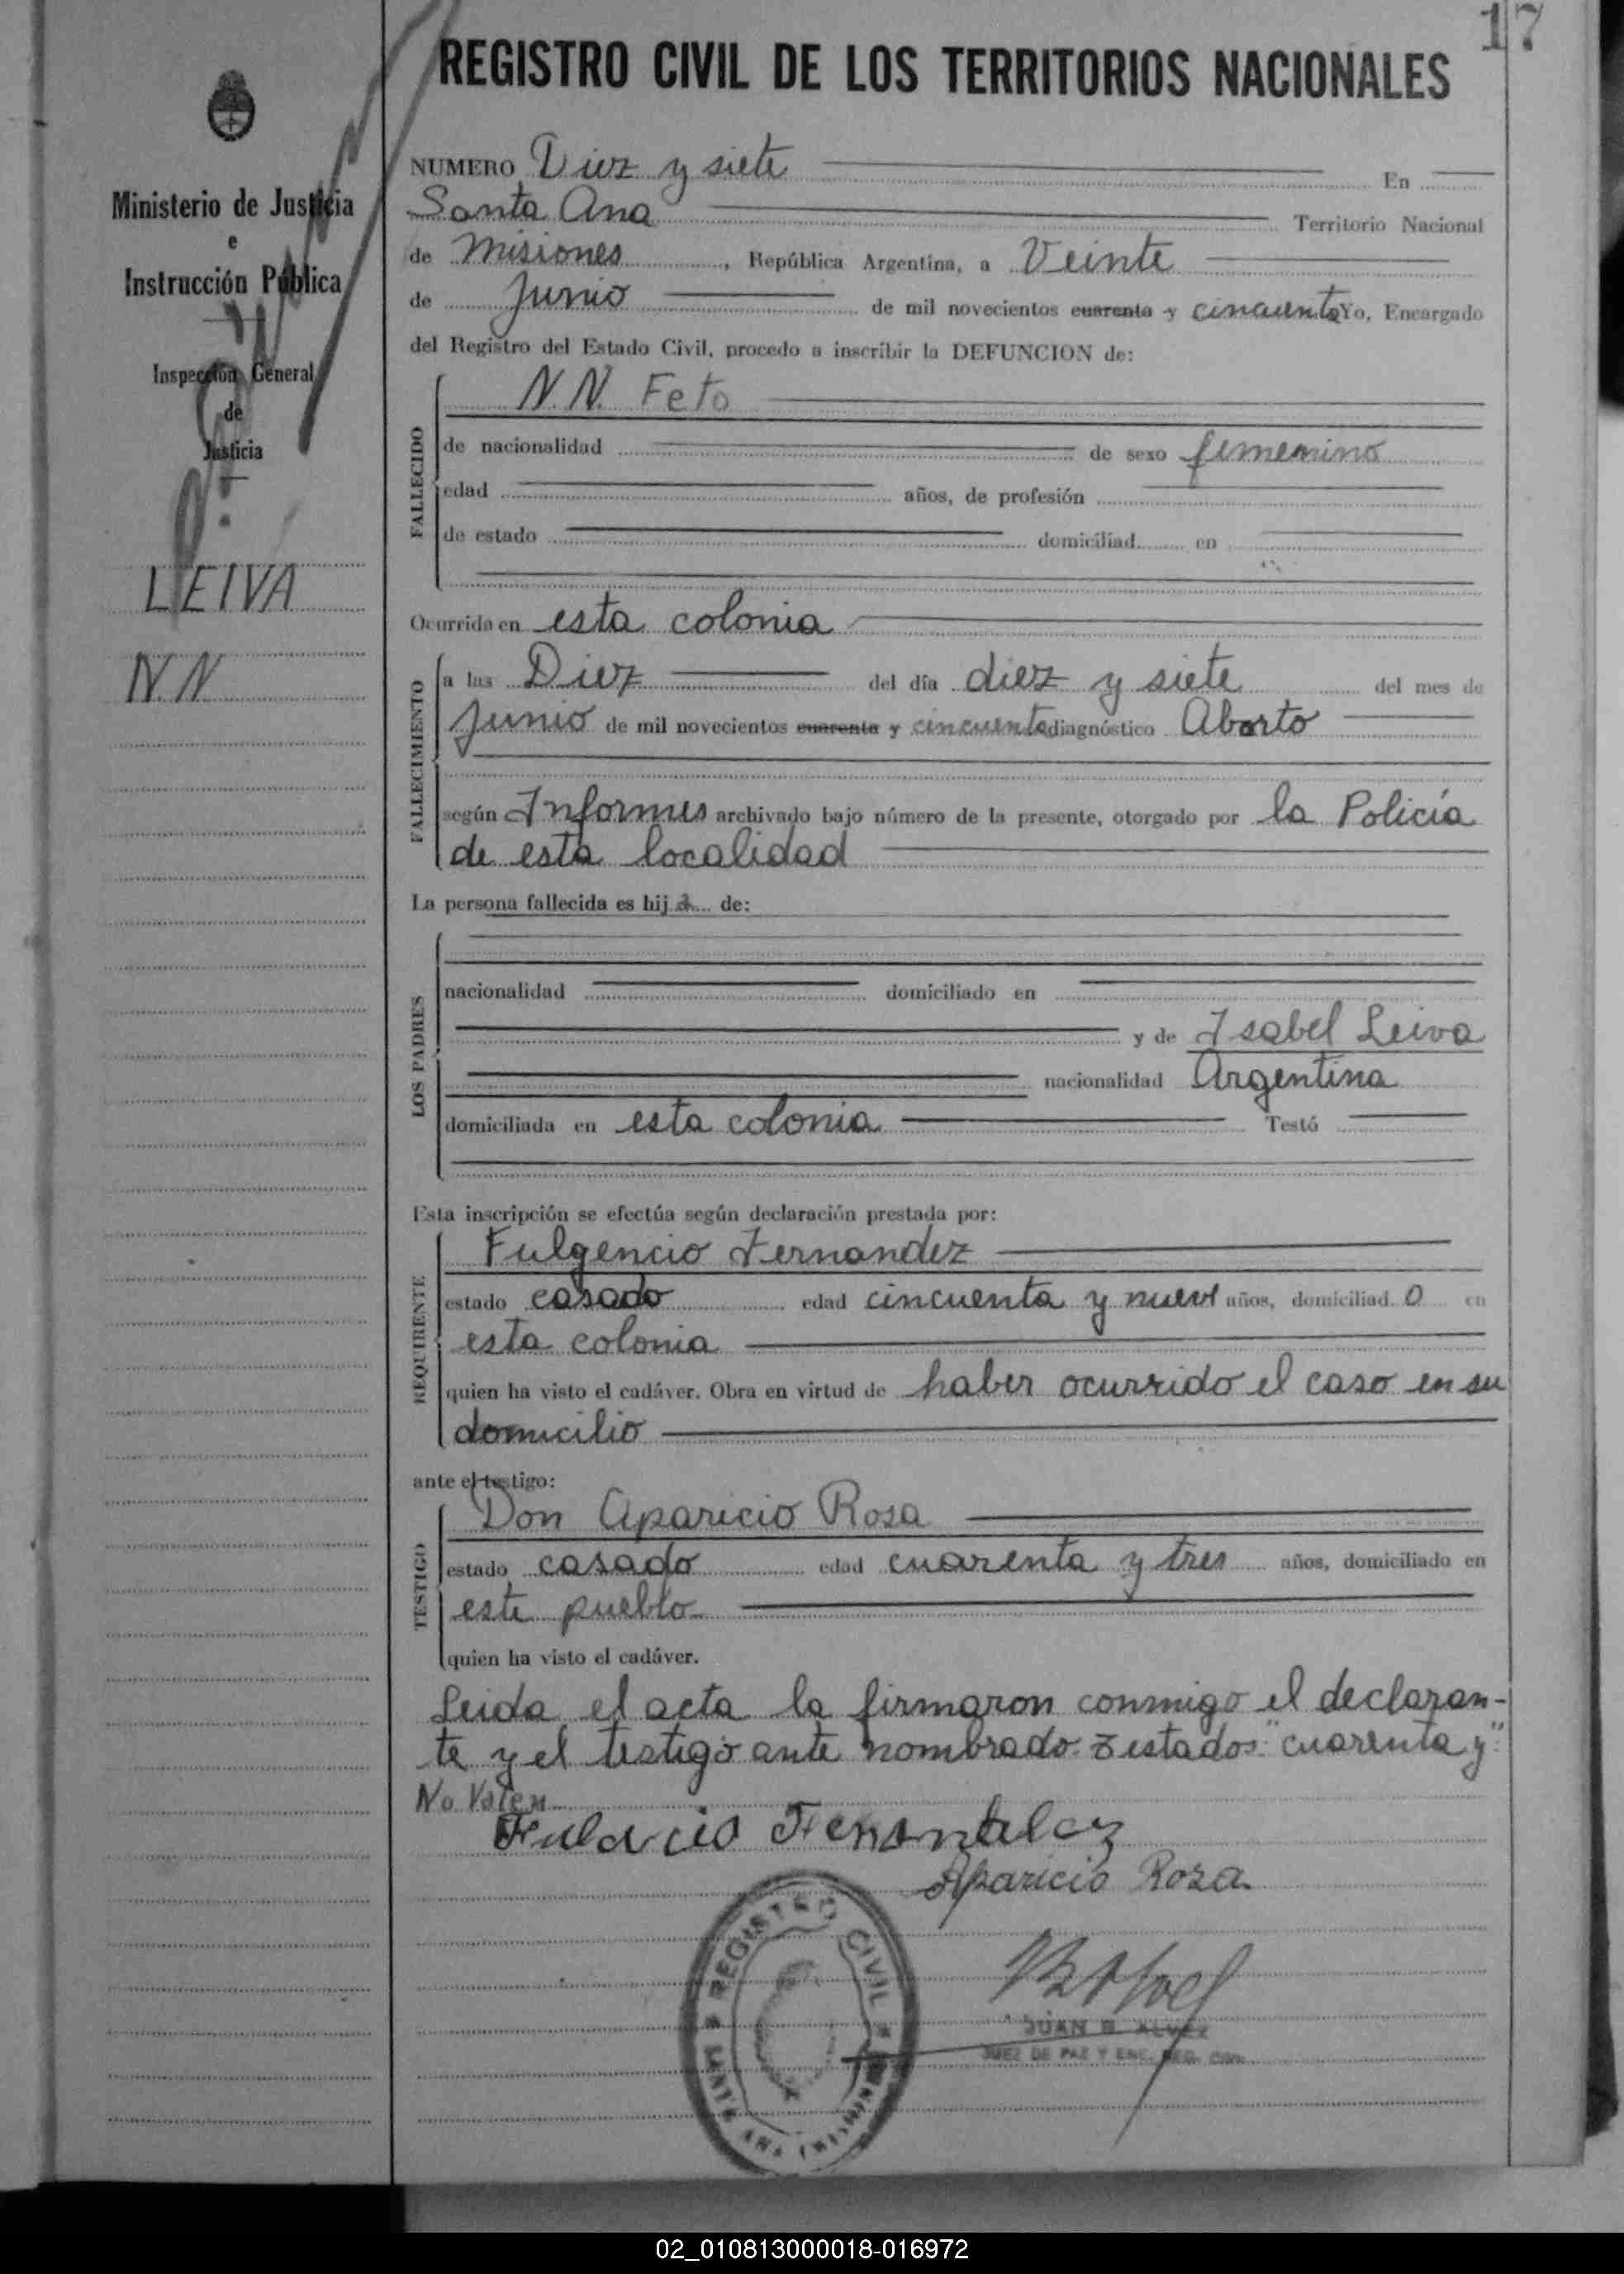 17
REGISTRO CIVIL DE LOS TERRITORIOS NACIONALES
Ministerio de Justicia
e
Instrucción Pública
Inspección General
de
Justicia
LEIVA
N.N
NUMERO Diez y siete En
Santa Ana Territorio Nacional
de Misiones, República Argentina, a Veinte
de Junio de mil novecientos cuarenta y cincuenta Yo, Encargado
del Registro del Estado Civil, procedo a inscribir la DEFUNCION de:
FALLECIDO
N.N. Feto
de nacionalidad de sexo femenino
edad años, de profesión
de estado domiciliad en
Ocurrida en esta colonia
FALLECIMIENTO
a las Diez del día diez y siete del mes de
Junio de mil novecientos cuarenta y cincuenta diagnóstico Aborto
según Informes archivado bajo número de la presente, otorgado por la Policía
de esta localidad
La persona fallecida es hija de:
LOS PADRES
nacionalidad domiciliado en
y de Isabel Leiva
nacionalidad Argentina
domiciliada en esta colonia Testó
Esta inscripción se efectúa según declaración prestada por:
REQUIRENTE
Fulgencio Fernandez
estado casado edad cincuenta y nueve años, domiciliad o en
esta colonia
quien ha visto el cadáver. Obra en virtud de haber ocurrido el caso en su
domicilio
ante el testigo:
TESTIGO
Don Aparicio Rosa
estado casado edad cuarenta y tres años, domiciliado en
este pueblo
quien ha visto el cadáver.
Leida el acta la firmaron conmigo el declaran-
te y el testigo ante nombrado. Testados: "cuarenta y"
No Valen
Fernandez
Aparicio Roza
REGISTRO CIVIL
SANTA ANA (MISIONES)
JUAN B. ALVEZ
JUEZ DE PAZ Y ENC. REG. CIVIL
02_010813000018-016972